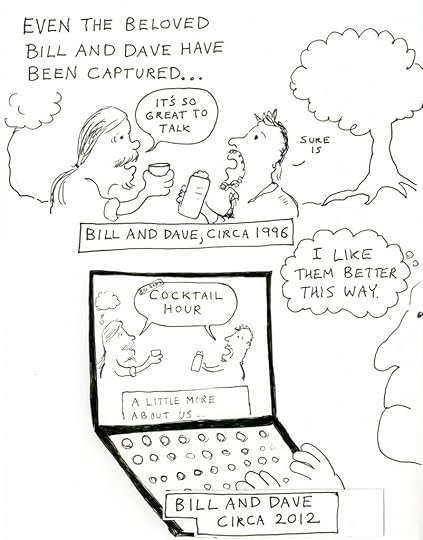 EVEN THE BELOVED
BILL AND DAVE HAVE
BEEN CAPTURED...
IT'S SO
GREAT TO
TALK
SURE
IS
BILL AND DAVE, CIRCA 1996
I LIKE
THEM BETTER
THIS WAY.
COCKTAIL
HOUR
A LITTLE MORE
ABOUT US...
BILL AND DAVE
CIRCA 2012